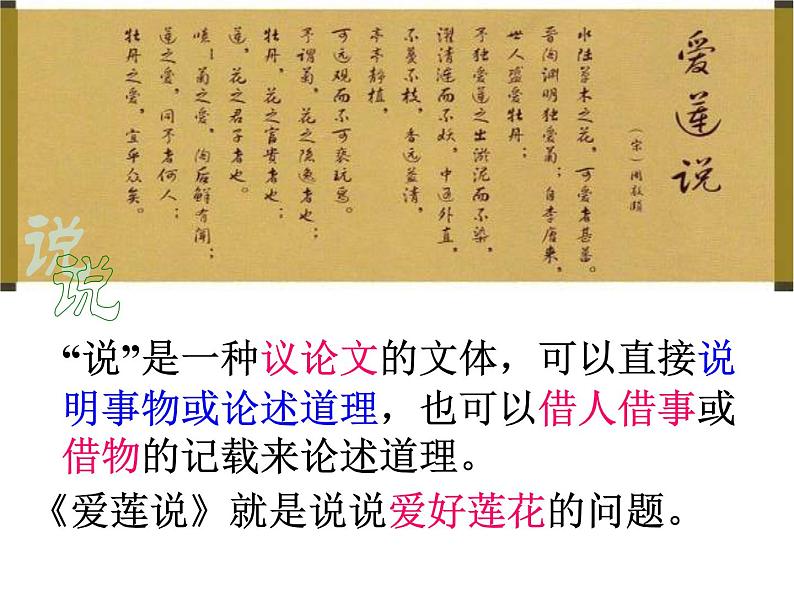 爱莲说
（宋）周敦颐
水陆草木之花，可爱者甚蕃。
晋陶渊明独爱菊；自李唐来，
世人盛爱牡丹；
予独爱莲之出淤泥而不染，
濯清涟而不妖，中通外直，
不蔓不枝，香远益清，
亭亭静植，
可远观而不可亵玩焉。
予谓菊，花之隐逸者也；
牡丹，花之富贵者也；
莲，花之君子者也。
噫！菊之爱，陶后鲜有闻；
莲之爱，同予者何人；
牡丹之爱，宜乎众矣。
说
说
“说”是一种议论文的文体，可以直接说
明事物或论述道理，也可以借人借事或
借物的记载来论述道理。
《爱莲说》就是说说爱好莲花的问题。